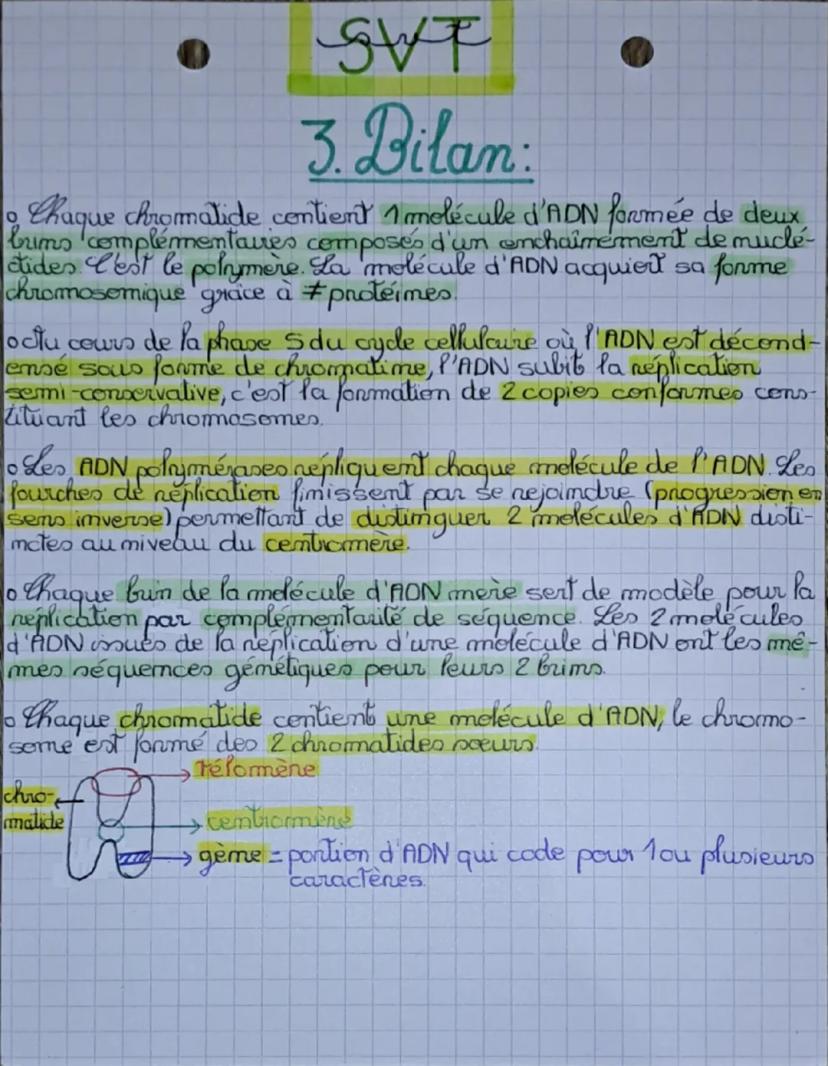 SVT
3. Bilan:
o Chaque chromatide contient 1 molécule d'ADN formée de deux
brins complémentaires composés d'un enchaînement de nuclé-
otides. C'est le polymère. La molécule d'ADN acquiert sa forme
chromosomique grâce à ≠ protéines.
o Au cours de la phase S du cycle cellulaire où l'ADN est décond-
ensé sous forme de chromatine, l'ADN subit la réplication
semi-conservative, c'est la formation de 2 copies conformes cons-
tituant les chromosomes.
o Les ADN polymérases répliquent chaque molécule de l'ADN. Les
fourches de réplication finissent par se rejoindre (progression en
sens inverse) permettant de distinguer 2 molécules d'ADN disti-
nctes au niveau du centromère.
o Chaque brin de la molécule d'ADN mère sert de modèle pour la
réplication par complémentarité de séquence. Les 2 molécules
d'ADN issues de la réplication d'une molécule d'ADN ont les mê-
mes séquences génétiques pour leurs 2 brins.
o Chaque chromatide contient une molécule d'ADN, le chromo-
some est formé des 2 chromatides sœurs.
télomène
chro-
matide
centromère
gène = portion d'ADN qui code pour 1 ou plusieurs
caractères.